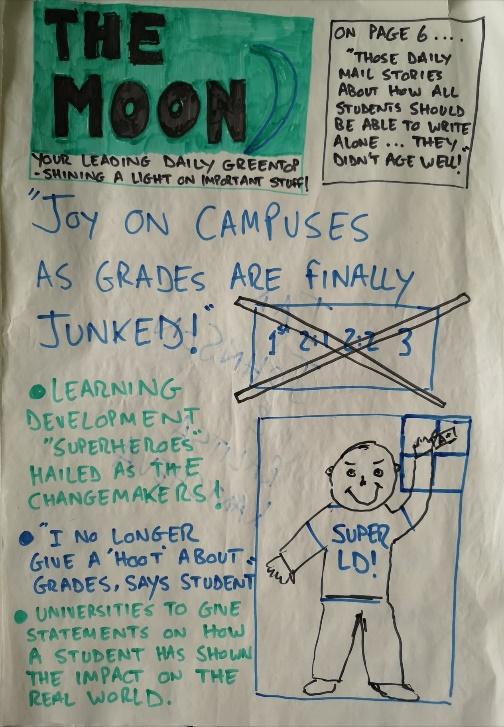 THE
MOON
YOUR LEADING DAILY GREENTOP
- SHINING A LIGHT ON IMPORTANT STUFF!
ON PAGE 6 ....
"THOSE DAILY
MAIL STORIES
ABOUT HOW ALL
STUDENTS SHOULD
BE ABLE TO WRITE
ALONE ... THEY
DIDN'T AGE WELL!"
"JOY ON CAMPUSES
AS GRADES ARE FINALLY
JUNKED!"
1st 2:1 2:2 3
• LEARNING
DEVELOPMENT
"SUPERHEROES"
HAILED AS THE
CHANGEMAKERS!
• "I NO LONGER
GIVE A 'HOOT' ABOUT
GRADES", SAYS STUDENT
• UNIVERSITIES TO GIVE
STATEMENTS ON HOW
A STUDENT HAS SHOWN
THE IMPACT ON THE
REAL WORLD.
SUPER
LD!